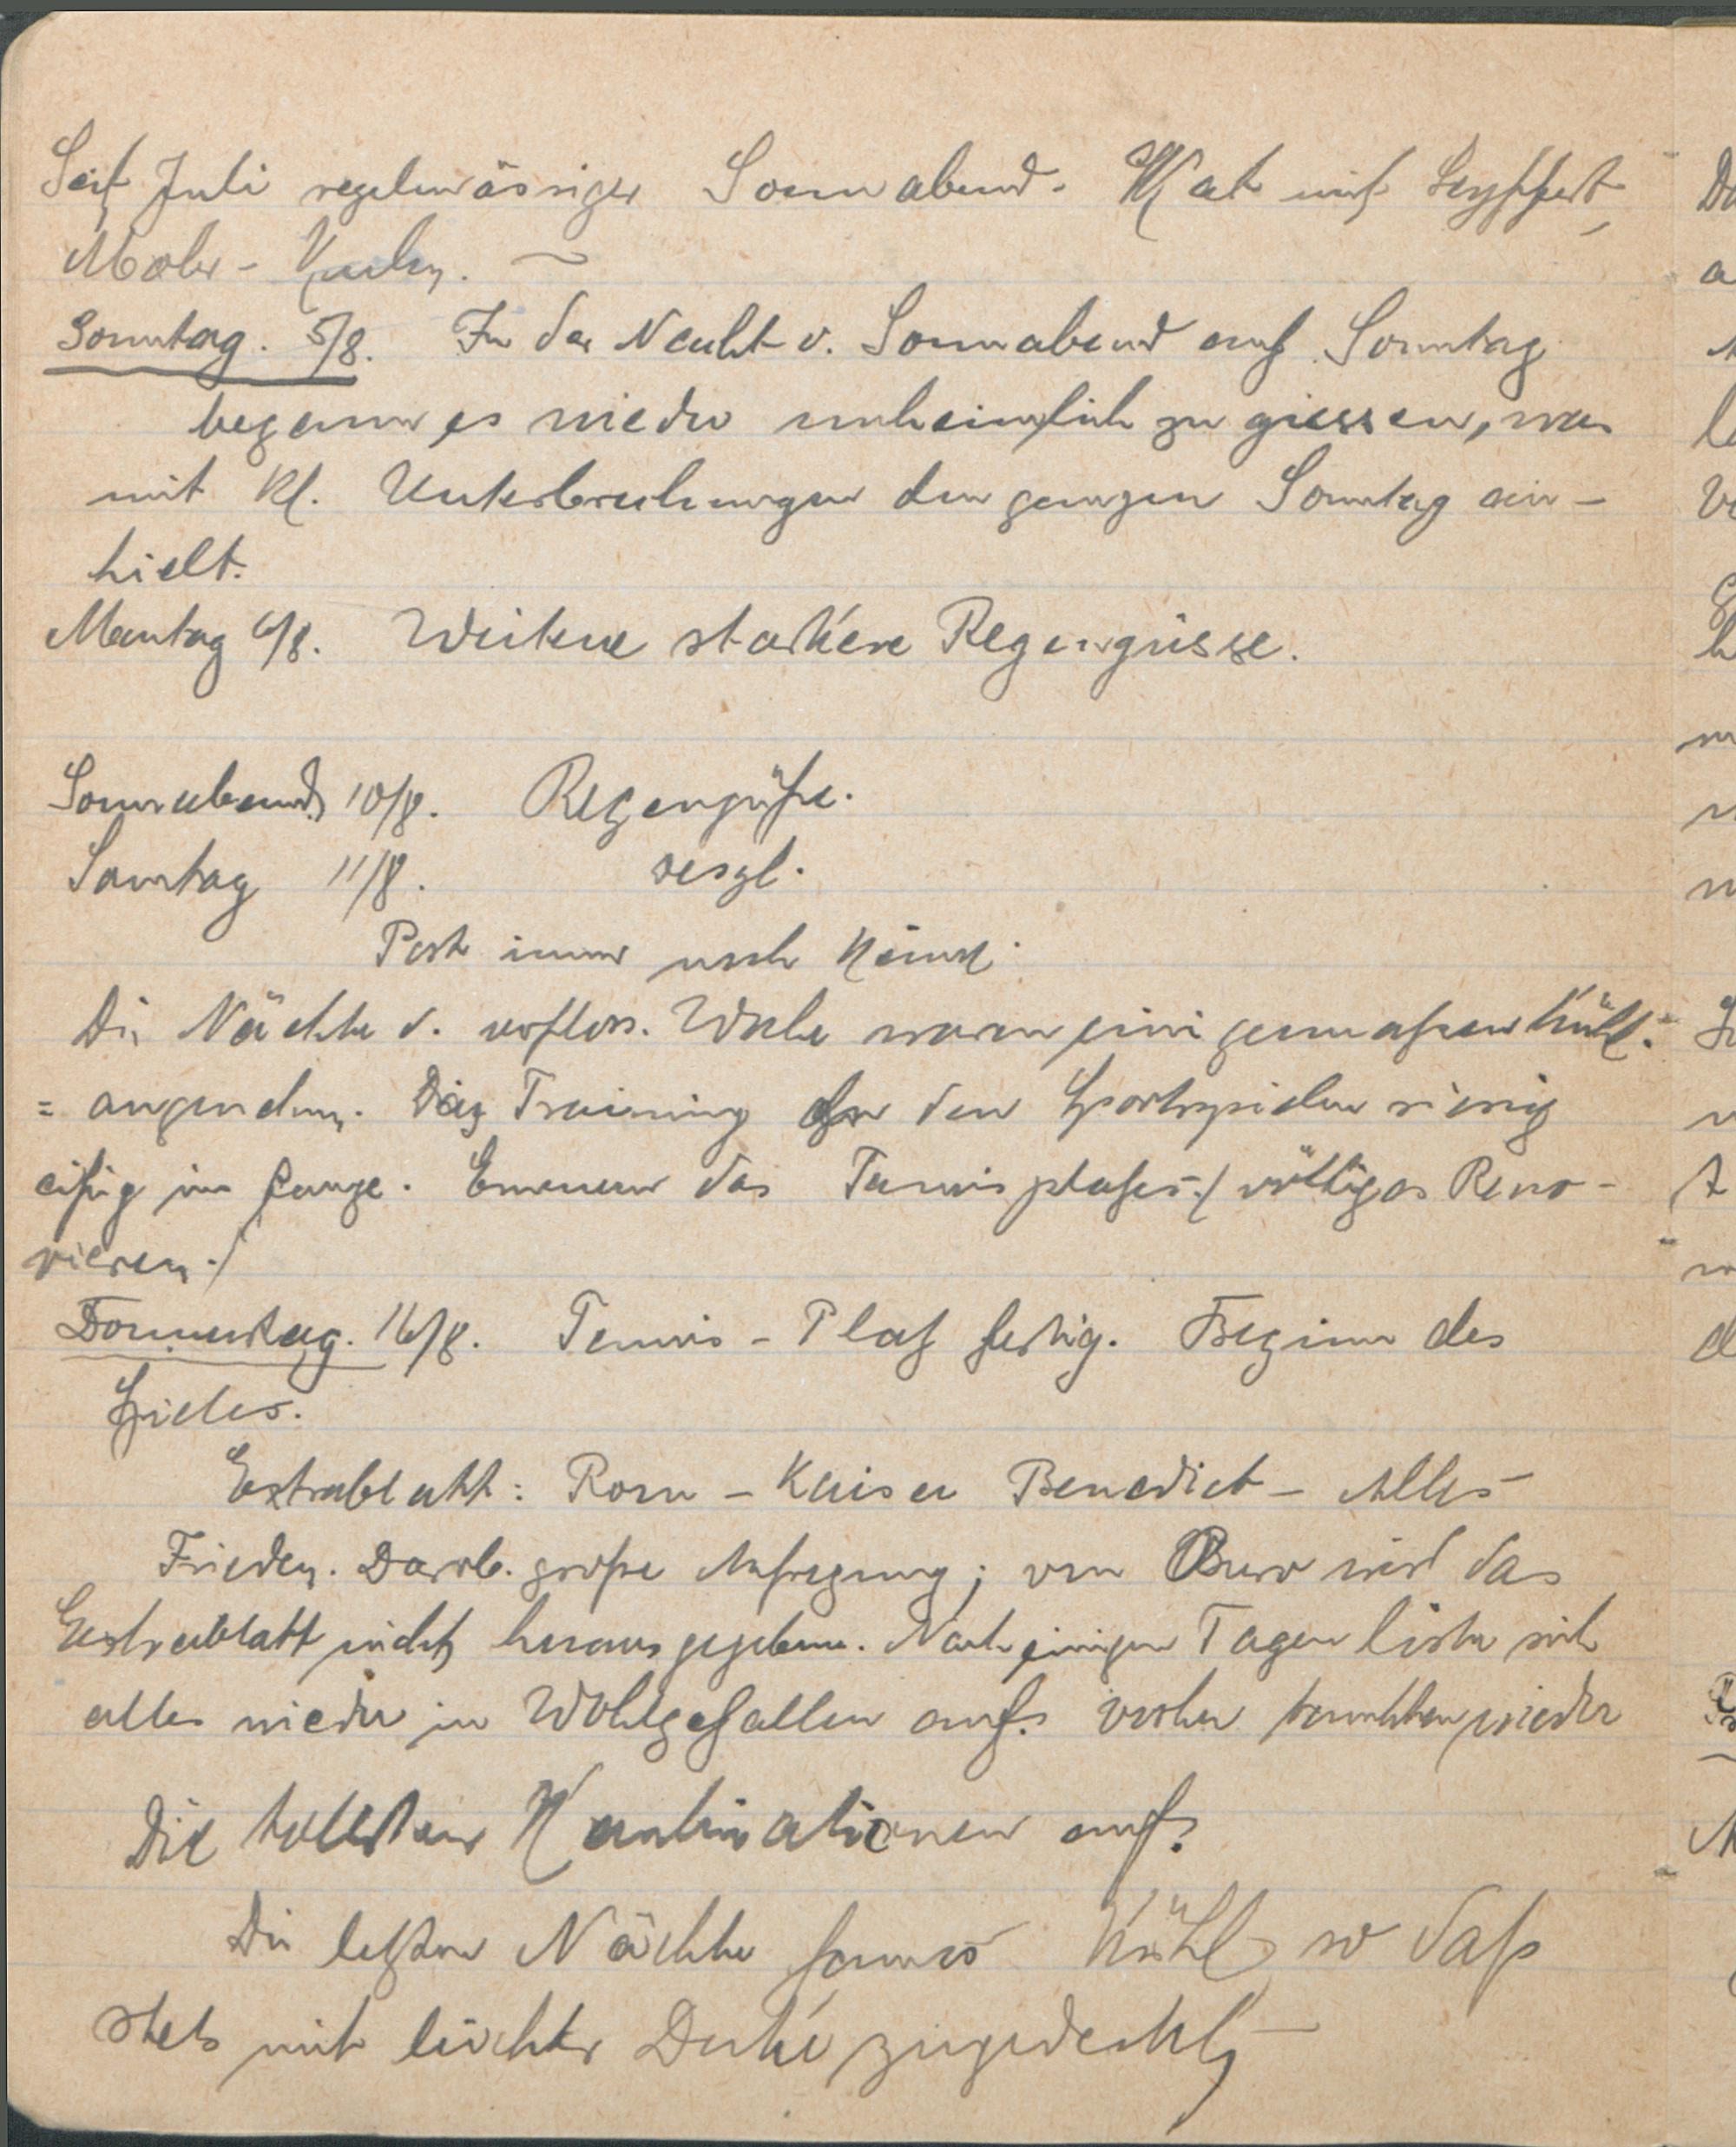 Seit Juli regelmässiger Sonnabend-Skat mit Seyffert,
Moslr-
Sonntag. 5/8. In der Nacht v. Sonnabend auf Sonntag
begann es wieder unheimlich zu giessen, was
mit kl. Unterbrechungen den ganzen Sonntag an-
hielt.
Montag 6/8. Weitere starke Regengüsse.
Sonnabend 10/8. Regengüße.
Sonntag 11/8. desgl.
Post immer noch keine.
Die Nächte d. verfloss. Woche waren einigermaßen kühl.
= angenehm. Das Training den Sportspielen riesig
eifrig im Gange. Erneuern des Tennisplatzes./ völliges Reno-
vieren./
Donnerstag. 16/8. Tennis-Platz fertig. Beginn des
Spieles.
Extrablatt: Rom - Kaiser Benedict - Alles
Frieden. Darob. große Aufregung; vom Büro wird das
Extrablatt nicht herausgegeben. Nach einigen Tagen löste sich
alles wieder in Wohlgefallen auf. Vorher tauchten wieder
Die tollsten Kombinationen auf.
Die letzten Nächte famos kühl, so daß
stets mit leichter Decke zugedeckt, -